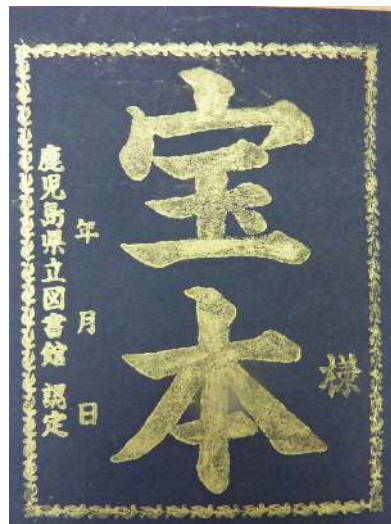 様
宝本
年 月 日
鹿児島県立図書館 認定